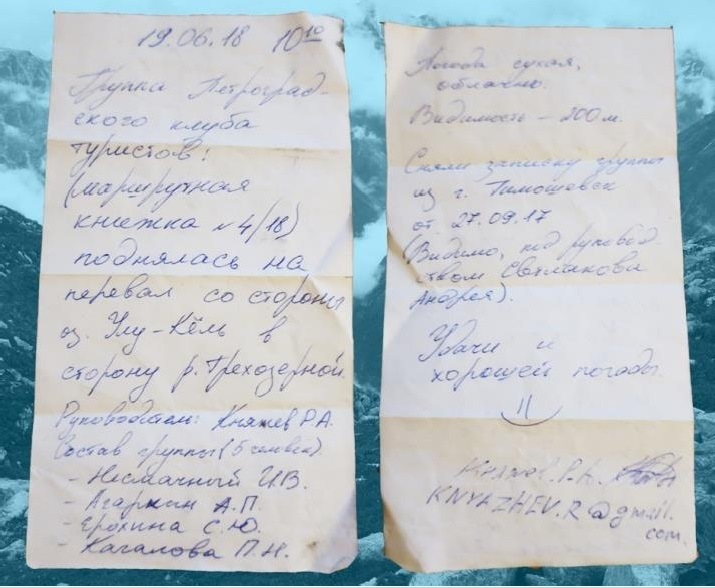 19.06.18 10¹⁰
Группа Петроград-
ского клуба
туристов:
(маршрутная
книжка №4/18)
поднялась на
перевал со стороны
оз. Улу-Кёль в
сторону р. Трехозерной.
Руководитель: Княжев Р.А.
Состав группы (5 человек)
- Несмачный И.В.
- Агаркин А.П.
- Ерохина С.Ю.
- Качалова П.Н.
Погода сухая,
облачно.
Видимость - 200 м.
Сняли записку группы
из г. Тимошевск
от 27.09.17
(Видимо, под руковод
ством Светлакова
Андрея).
Удачи и
хорошей погоды
Княжев Р.А.
KNYAZHEV.R@gmail.
com.